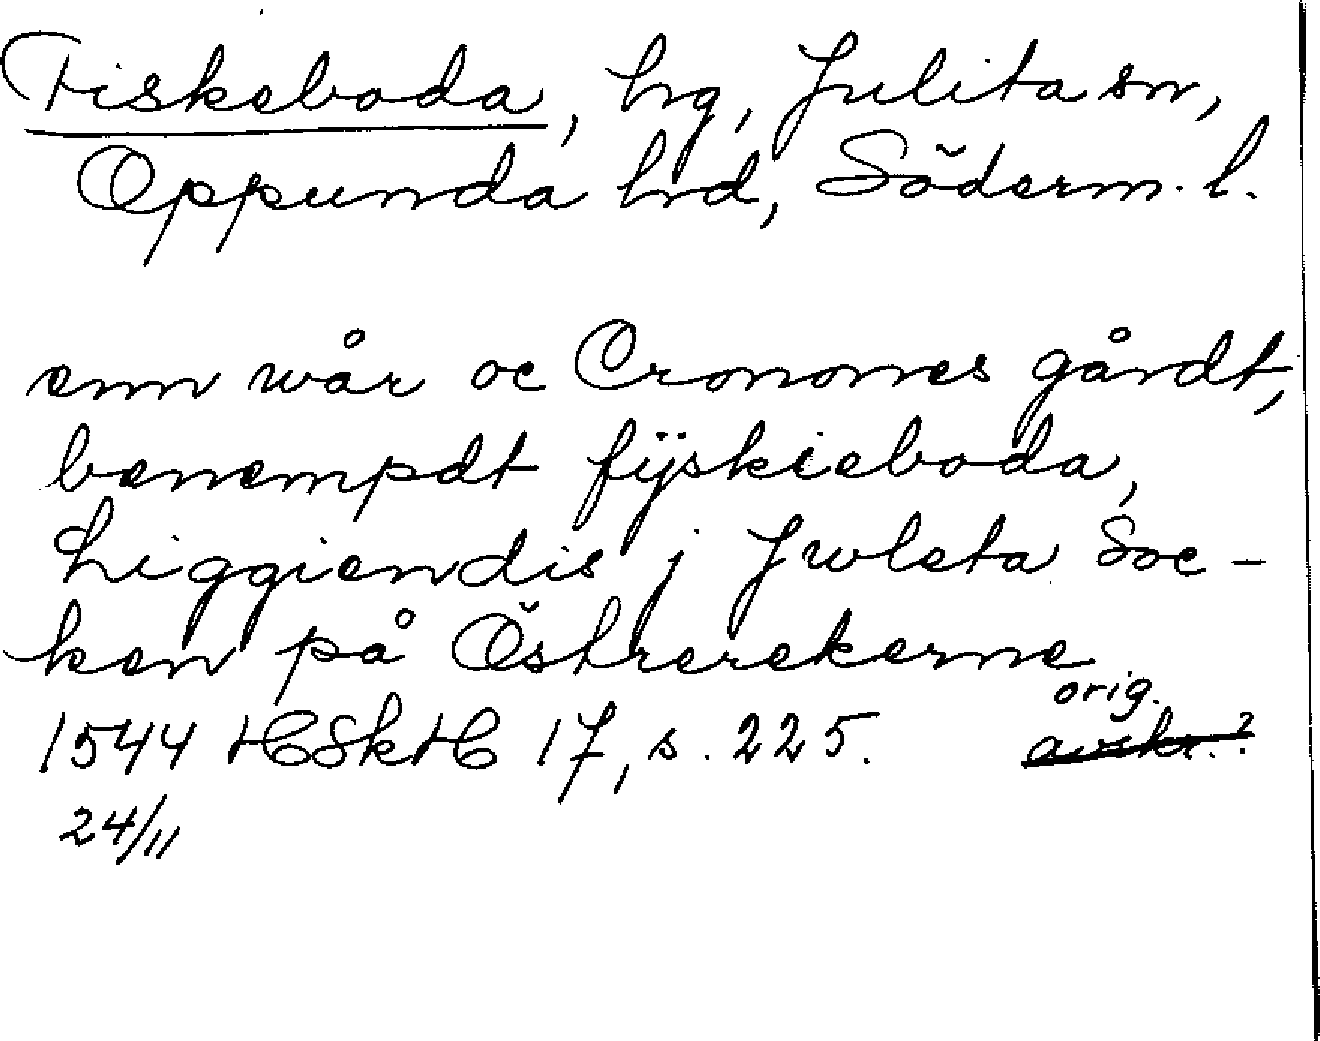 Fiskeboda, hg, Julita sn,
Oppunda hd, Söderm. l.
enn wår oc Cronones gårdt,
benempdt fÿskieboda,
Liggiendis j Jwleta Soc-
ken på Östrerekerne
orig.
1544 HSkH 17, s. 225. avskr.?
24/11